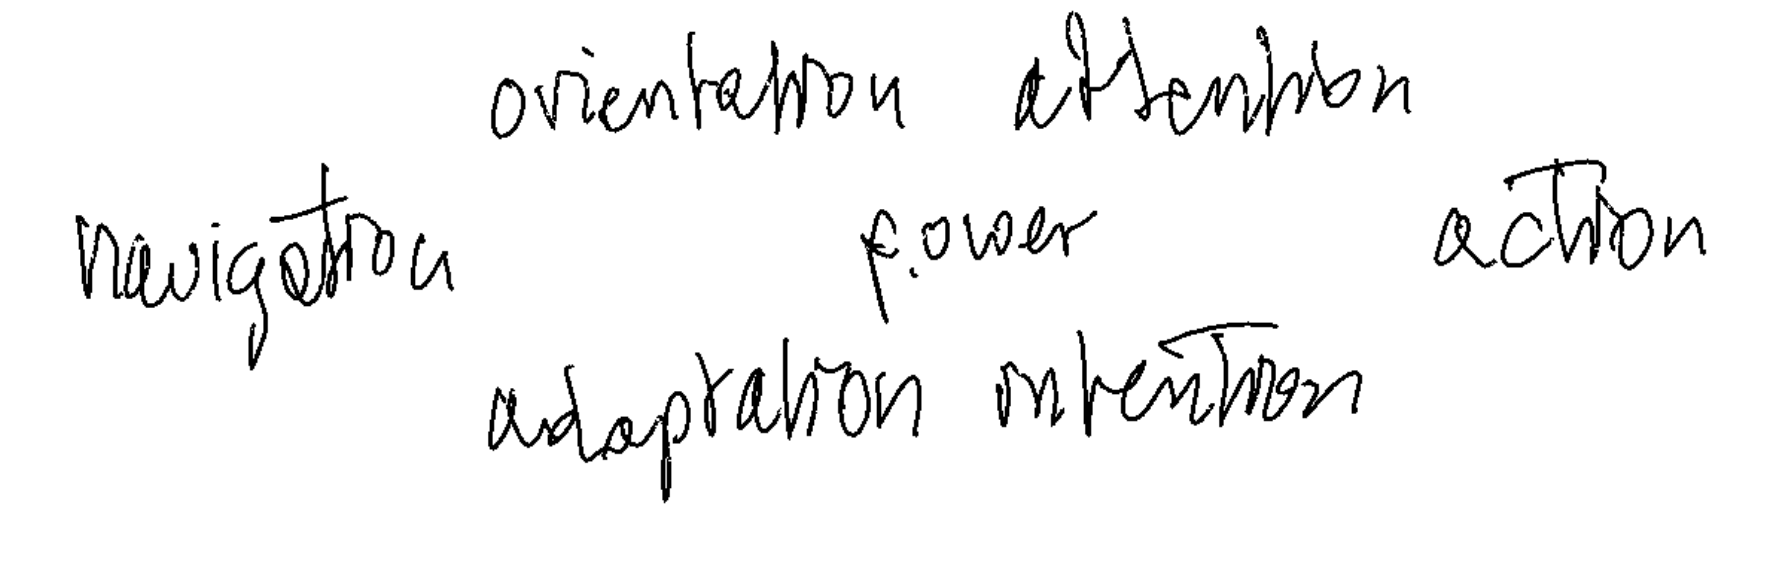 orientation attention
navigation power action
adaptation intention